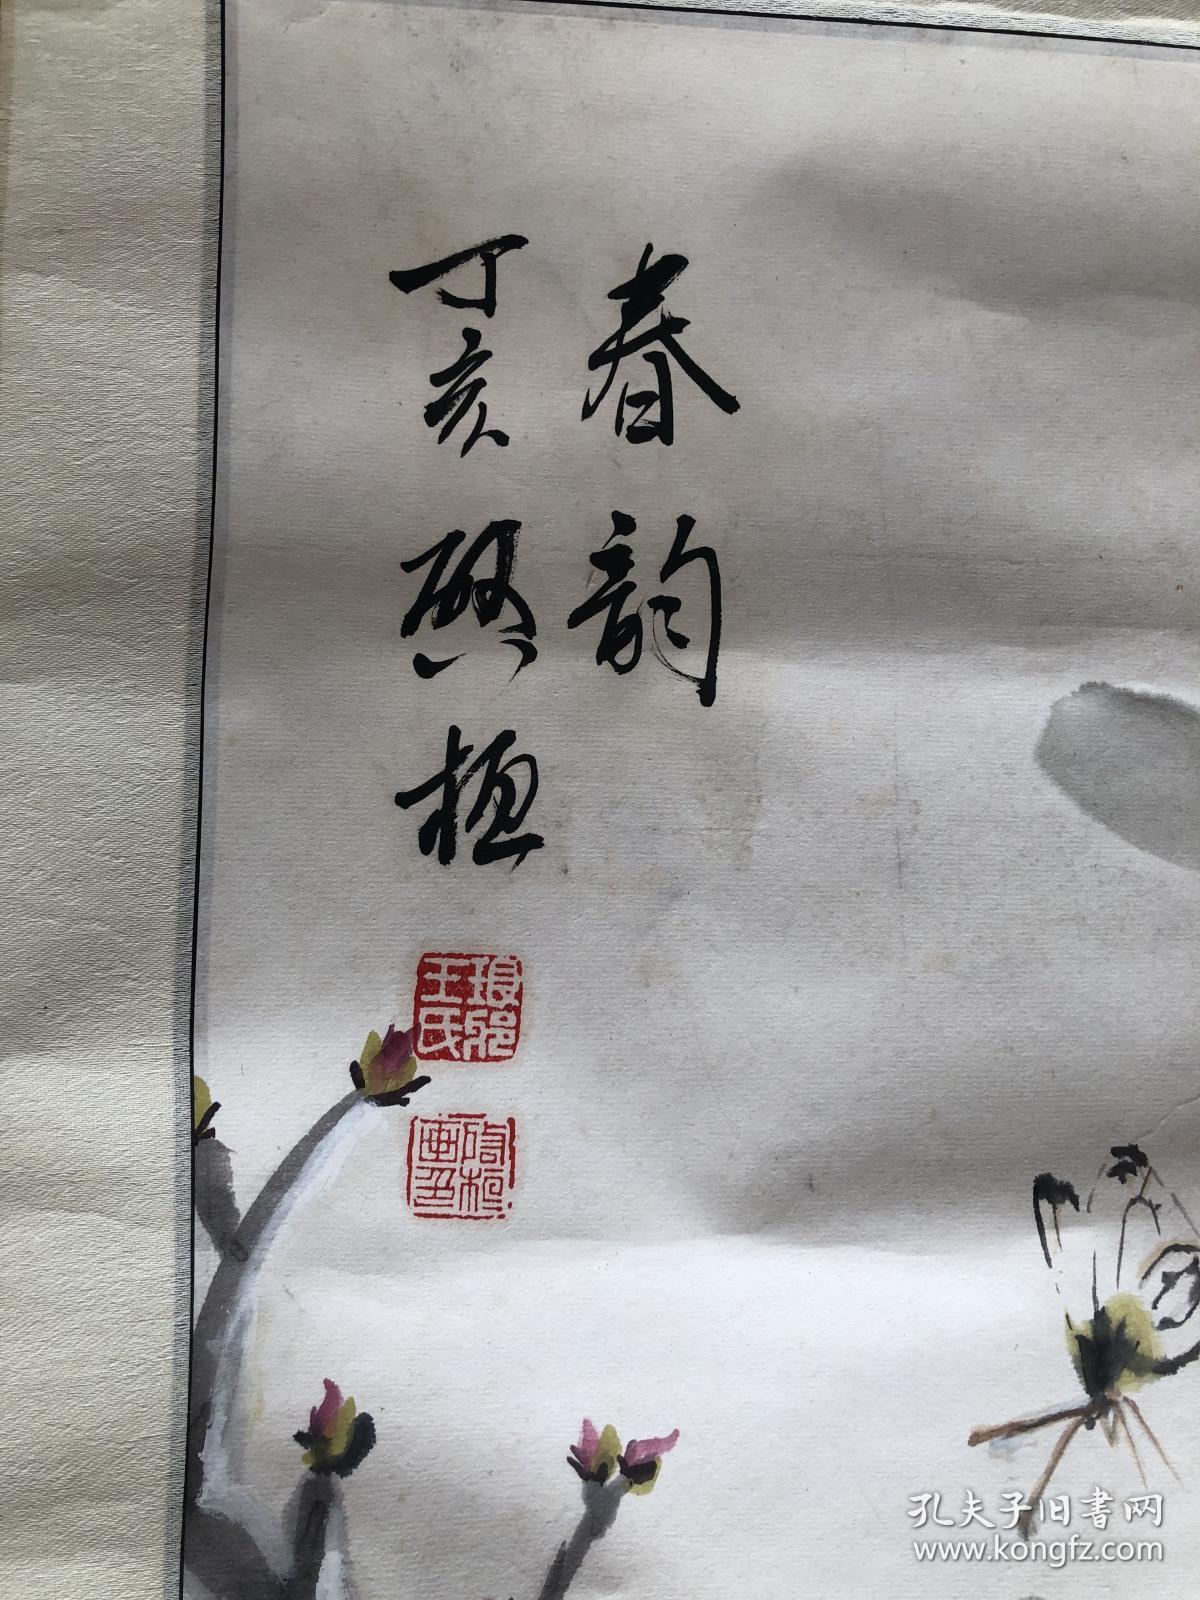 春韵
丁亥 啟桓
琅邪王氏
启桓画印
孔夫子旧书网
www.kongfz.com